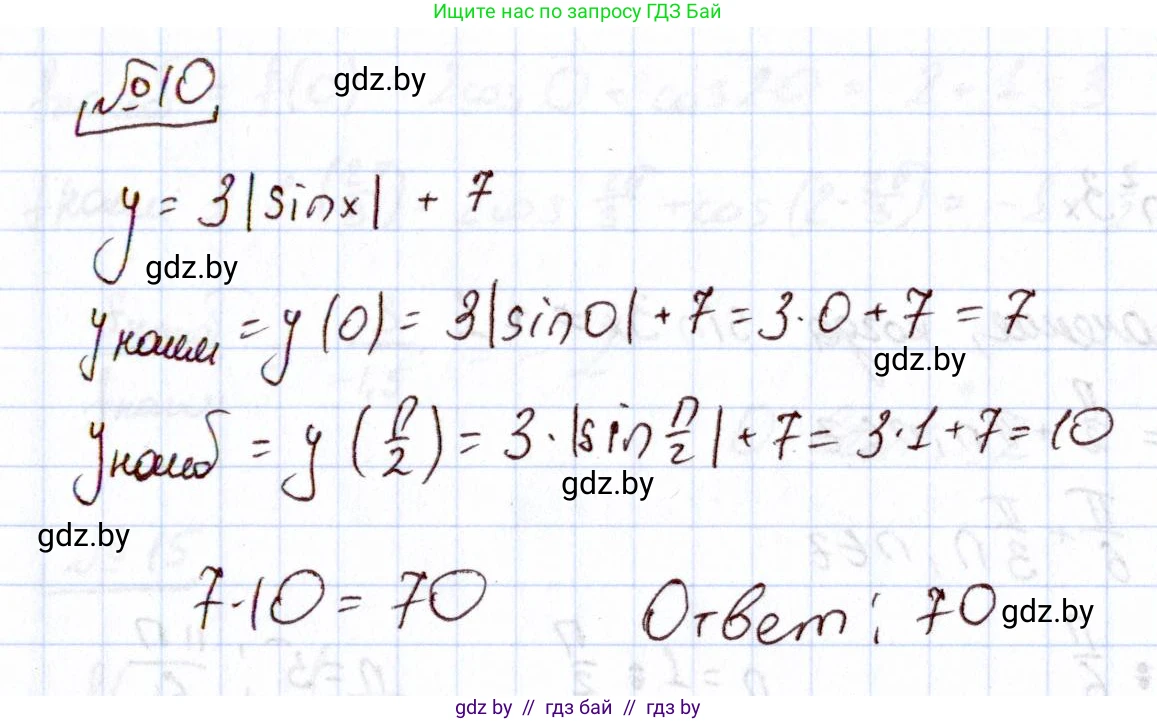 Ищите нас по запросу ГДЗ Бай
№10 gdz.by
y = 3|sinx| + 7
gdz.by
yнаим = y(0) = 3|sin0| + 7 = 3·0 + 7 = 7
gdz.by
yнаиб = y(π/2) = 3·|sin π/2| + 7 = 3·1 + 7 = 10
gdz.by
gdz.by
7·10 = 70 Ответ: 70 gdz.by
gdz by // гдз бай // гдз by